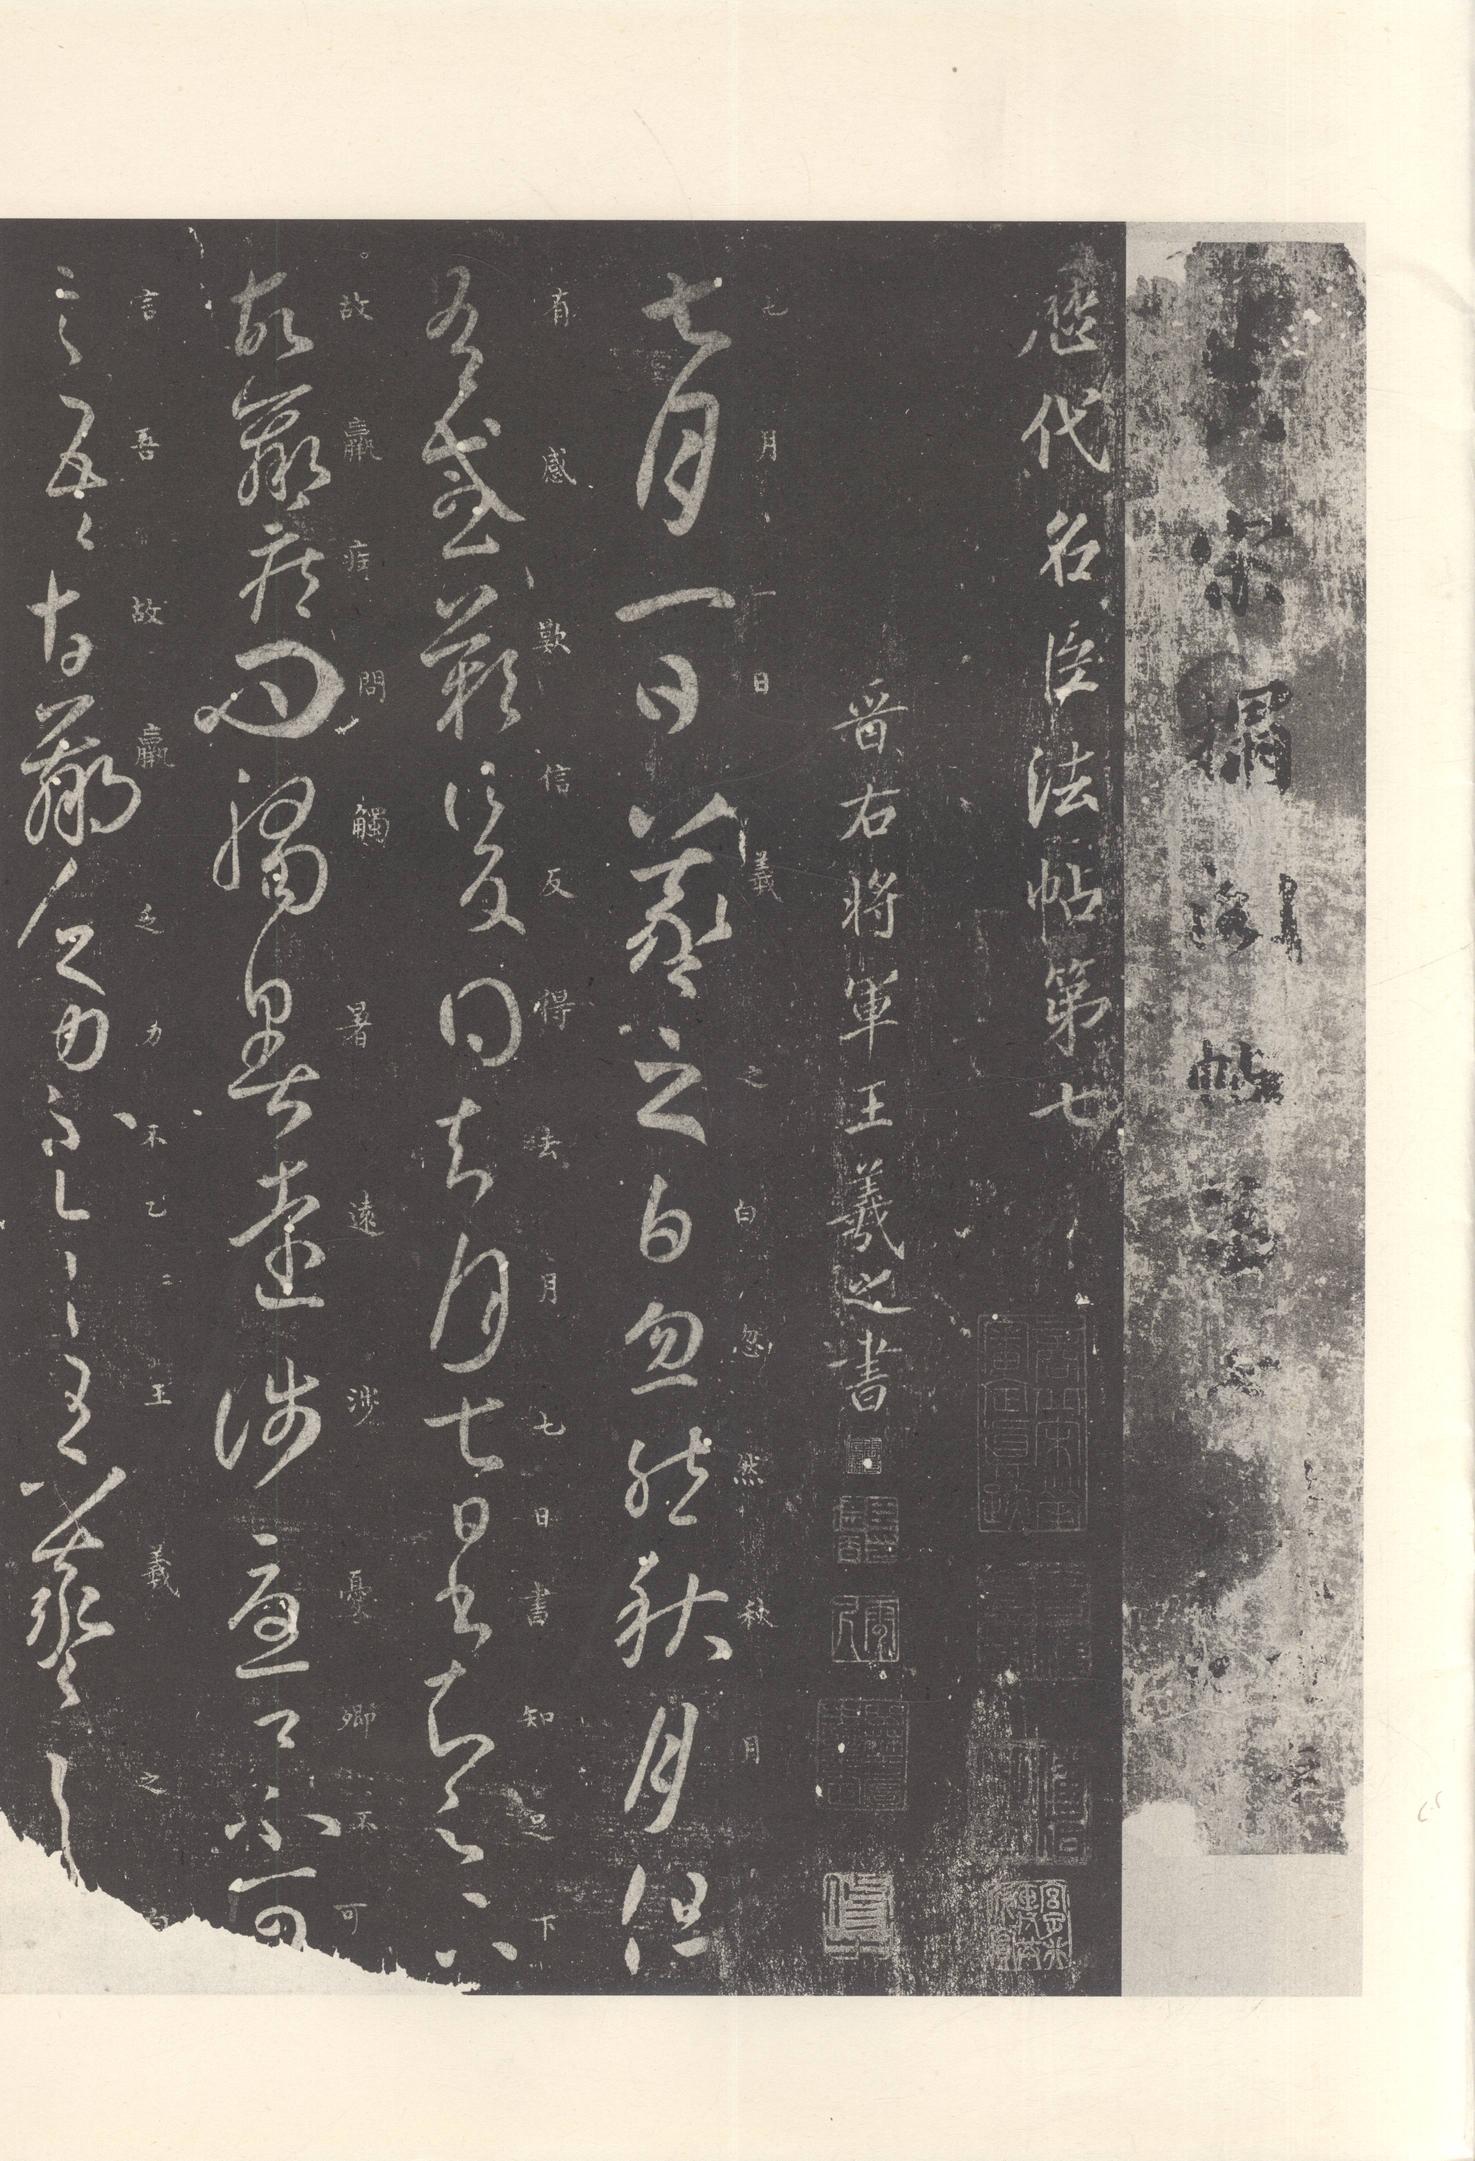 宋搨帖
歷代名臣法帖第七
晉右將軍王羲之書
七月一日羲之白忽然秋月
七月一日羲之白忽然秋月但
有感歎信反得去月七日書知足下
有感歎信反得去月七日書知足下
故羸疾問觸暑遠涉憂卿不可
故羸疾問觸暑遠涉憂卿不可
言吾故羸乏力不乙二王羲之白
言吾故羸乏力不一一王羲之